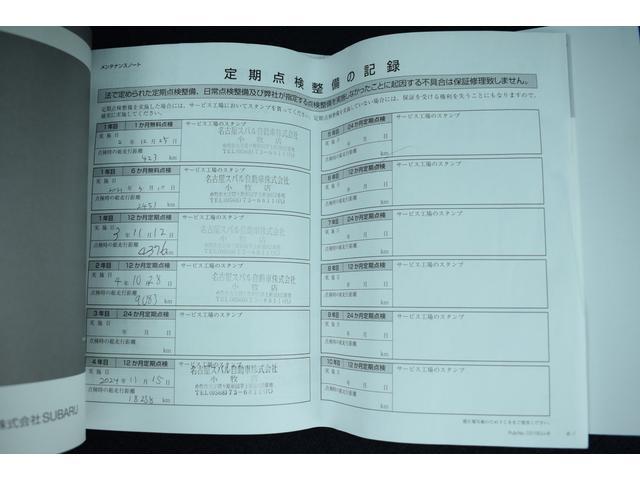 メンテナンスノート
定期点検整備の記録
法で定められた定期点検整備、日常点検整備及び弊社が指定する点検整備を実施しなかったことに起因する不具合は保証修理致しません。
1年目 1か月無料点検 サービス工場のスタンプ
実施日 2年12月25日
名古屋スバル自動車株式会社
小牧店
点検時の総走行距離
423 km
1年目 6か月無料点検 サービス工場のスタンプ
実施日
名古屋スバル自動車株式会社
小牧店
点検時の総走行距離
2451 km
1年目 12か月定期点検 サービス工場のスタンプ
実施日 3年11月12日
名古屋スバル自動車株式会社
小牧店
点検時の総走行距離
4376 km
2年目 12か月定期点検 サービス工場のスタンプ
実施日 4年10月28日
名古屋スバル自動車株式会社
小牧店
点検時の総走行距離
9083 km
3年目 24か月定期点検 サービス工場のスタンプ
実施日 年 月 日
点検時の総走行距離
km
4年目 12か月定期点検 サービス工場のスタンプ
実施日 2024年11月15日
名古屋スバル自動車株式会社
小牧店
点検時の総走行距離
km
5年目 24か月定期点検 サービス工場のスタンプ
実施日 年 月 日
点検時の総走行距離
km
6年目 12か月定期点検 サービス工場のスタンプ
実施日 年 月 日
点検時の総走行距離
km
7年目 24か月定期点検 サービス工場のスタンプ
実施日 年 月 日
点検時の総走行距離
km
8年目 12か月定期点検 サービス工場のスタンプ
実施日 年 月 日
点検時の総走行距離
km
9年目 24か月定期点検 サービス工場のスタンプ
実施日 年 月 日
点検時の総走行距離
km
10年目 12か月定期点検 サービス工場のスタンプ
実施日 年 月 日
点検時の総走行距離
km
株式会社 SUBARU